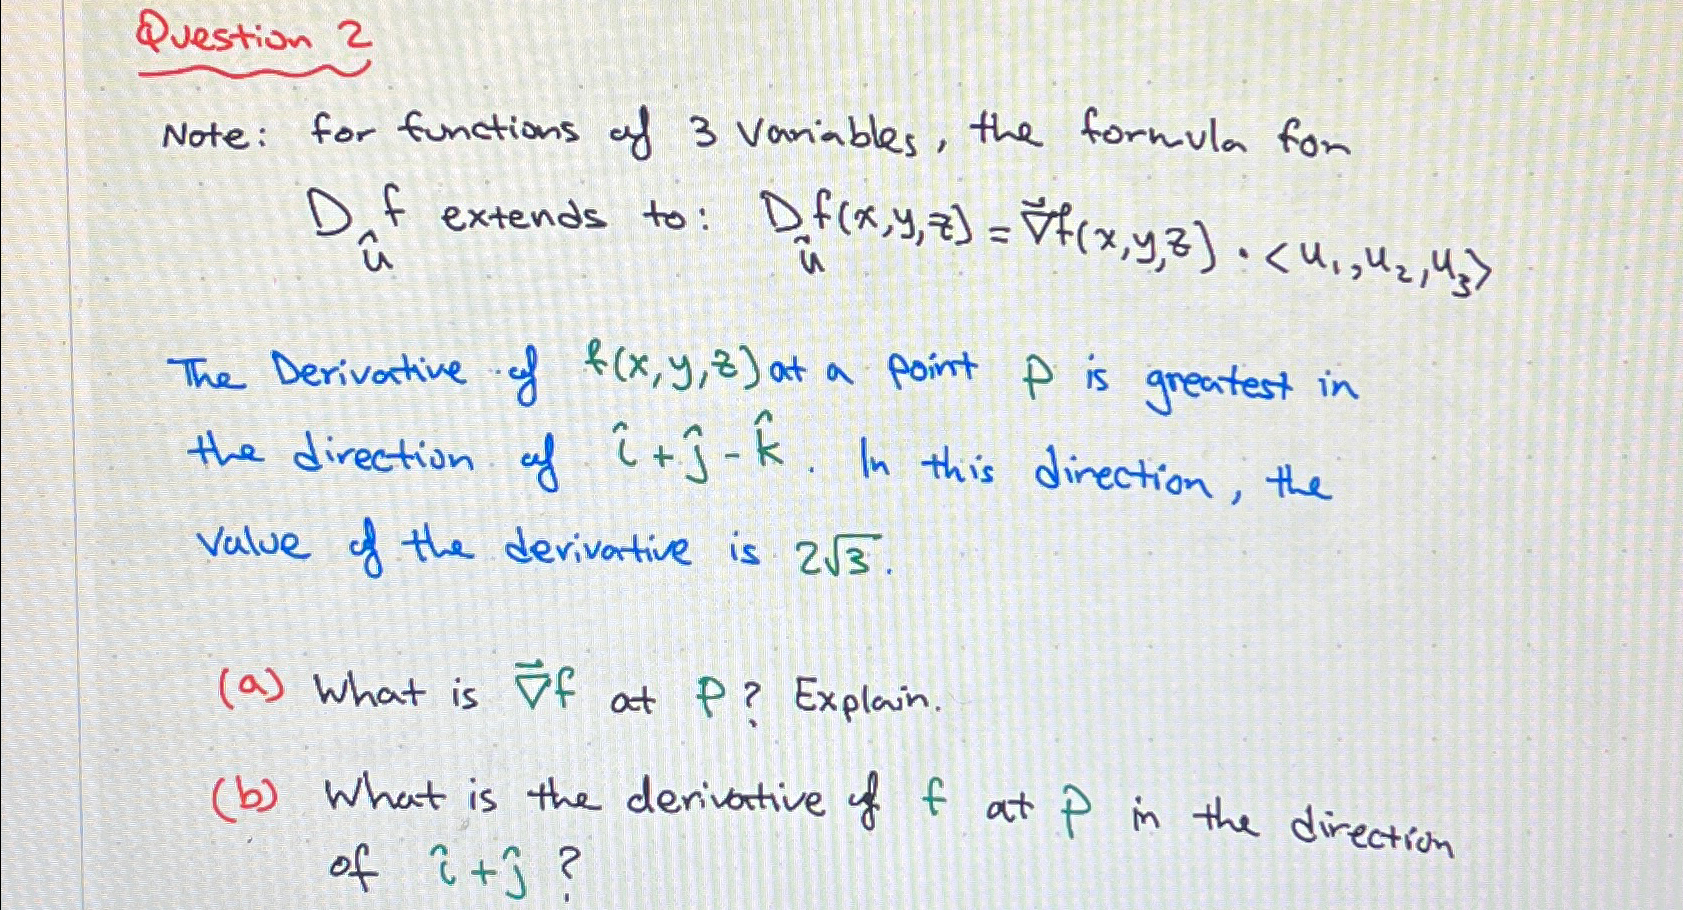 Question 2
Note: for functions of 3 variables, the formula for
D_û f extends to: D_û f(x,y,z) = ∇⃗f(x,y,z) · <u₁,u₂,u₃>
The Derivative of f(x,y,z) at a point P is greatest in
the direction of î+ĵ-k̂. In this direction, the
value of the derivative is 2√3.
(a) What is ∇⃗f at P? Explain.
(b) What is the derivative of f at P in the direction
of î+ĵ?